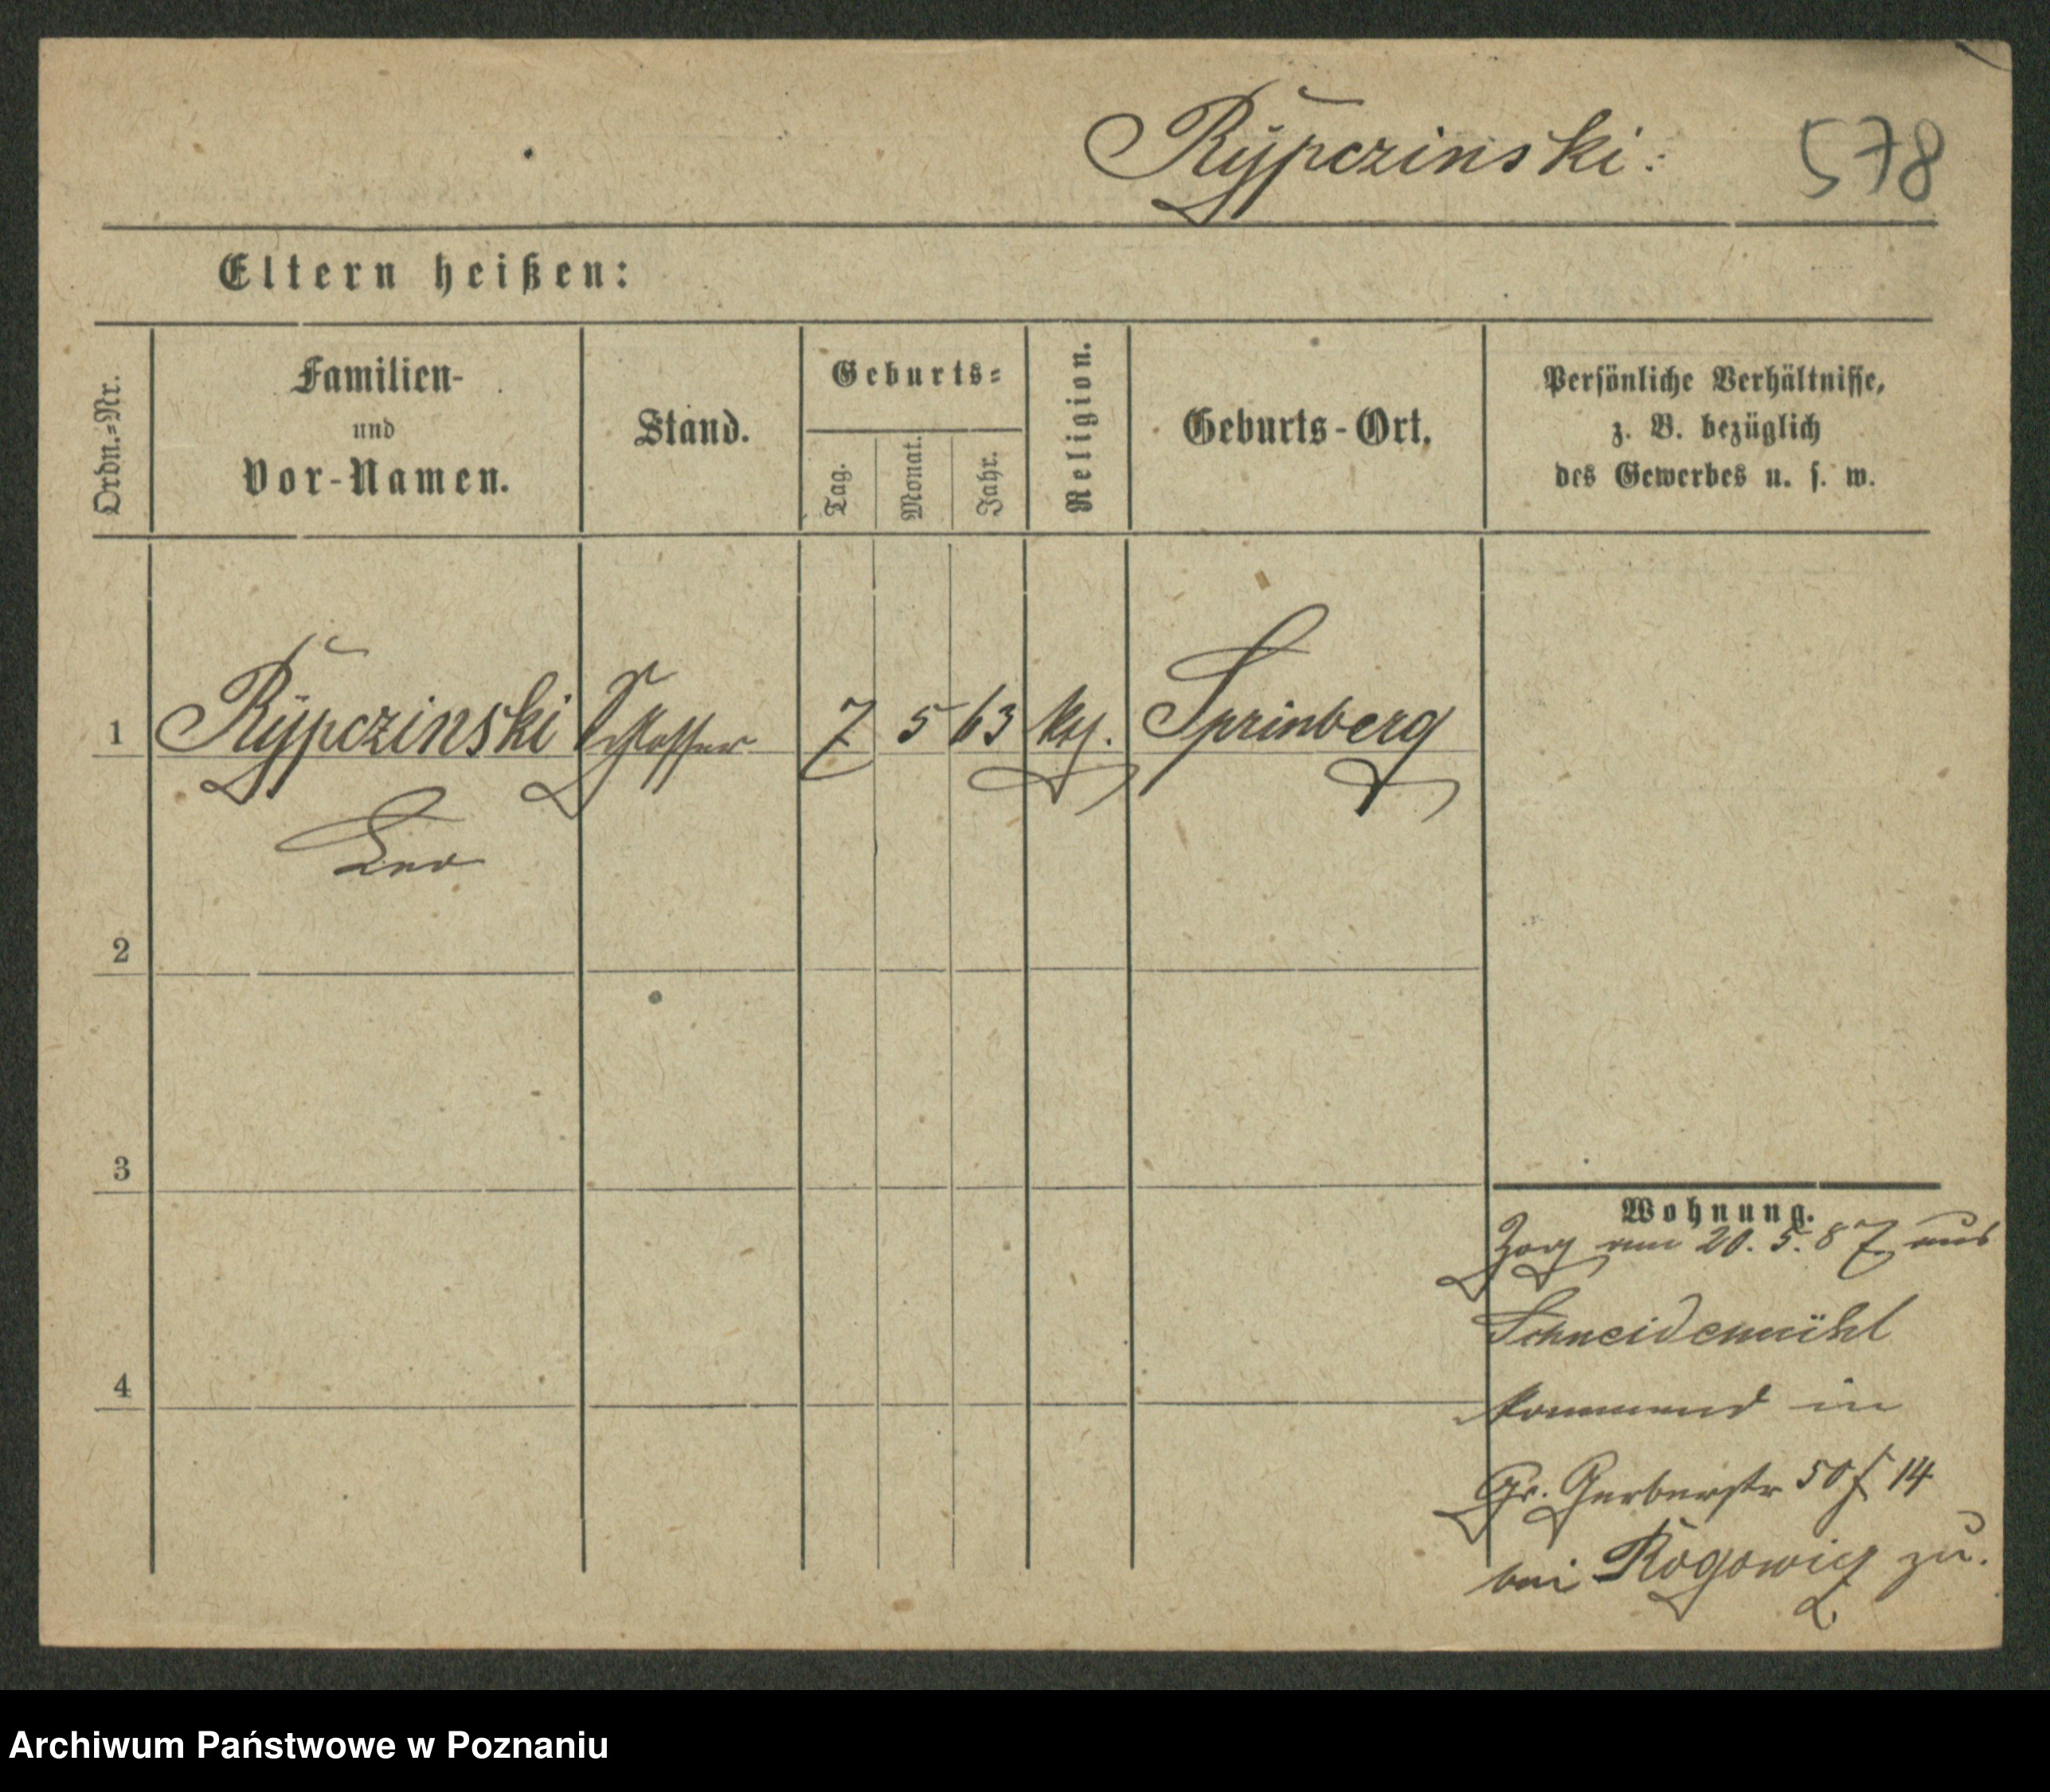 Rÿpczinski.
578
Eltern heißen:
Ordn.-Nr.
Familien-
und
Vor-Namen.
Stand.
Geburts-
Tag.
Monat.
Jahr.
Religion.
Geburts-Ort.
Persönliche Verhältnisse,
z. B. bezüglich
des Gewerbes u. s. w.
1 Rÿpczinski Schlosser 7 5 63 kth. Sprinberg
Leo
2
3
4
Wohnung.
Zog am 20. 5. 87 aus
Schneidemühl
kommend in
Gr. Gerberstr 50 14
bei Rogowicz zu.
Archiwum Państwowe w Poznaniu